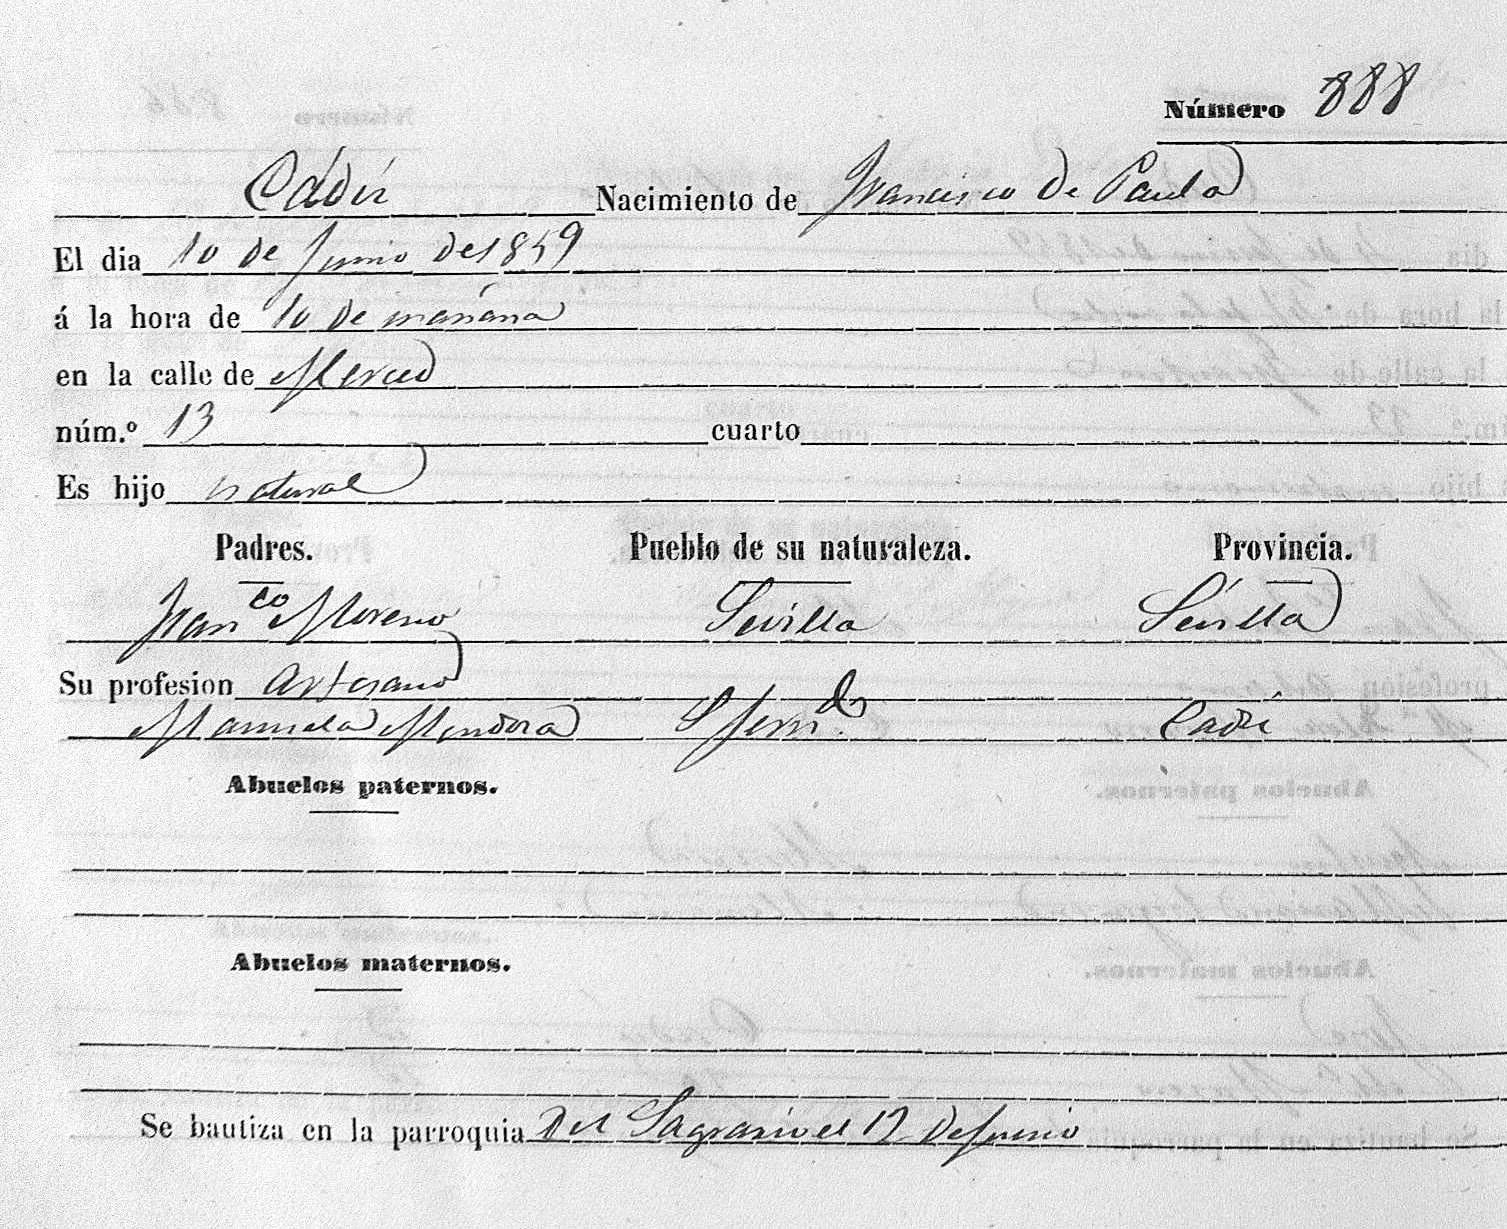 Número 888
Cádiz Nacimiento de Francisco de Paula
El dia 10 de Junio de 1859
á la hora de 10 de mañana
en la calle de Merced
núm.º 13 cuarto
Es hijo natural
Padres. Pueblo de su naturaleza. Provincia.
Franco Moreno Sevilla Sevilla
Su profesion artesano
Manuela Mendoza Sn Fernd.o Cadi
Abuelos paternos.
Abuelos maternos.
Se bautiza en la parroquia del Sagrario el 12 de Junio